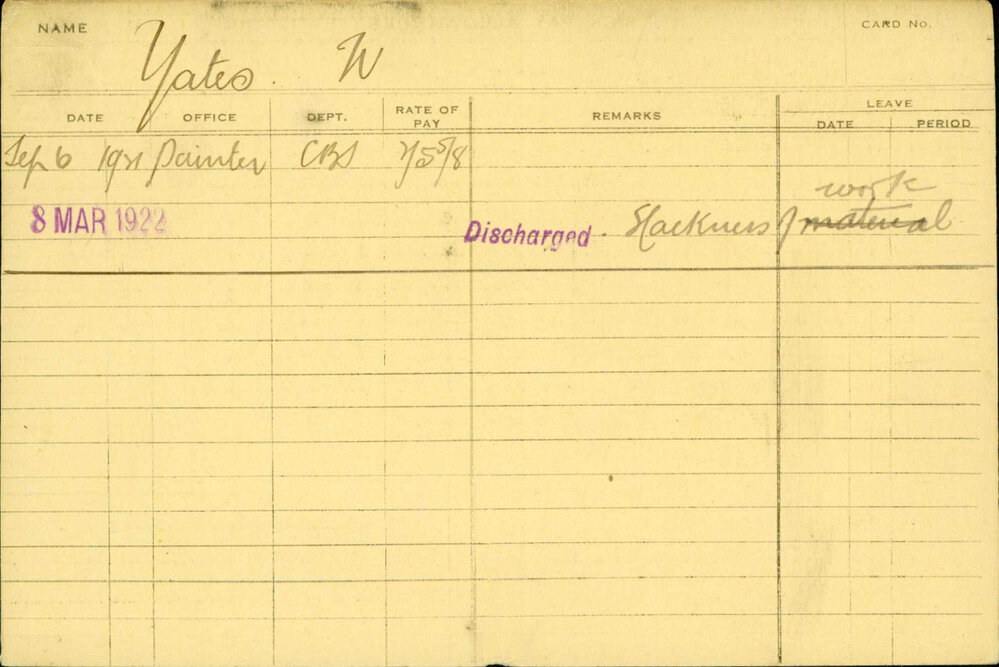 NAME Yates. W CARD No.
DATE OFFICE DEPT. RATE OF PAY REMARKS LEAVE
DATE PERIOD
Sep 6 1921 Painter CBS 7/5 5/8
work
8 MAR 1922 Discharged. Slackness of material